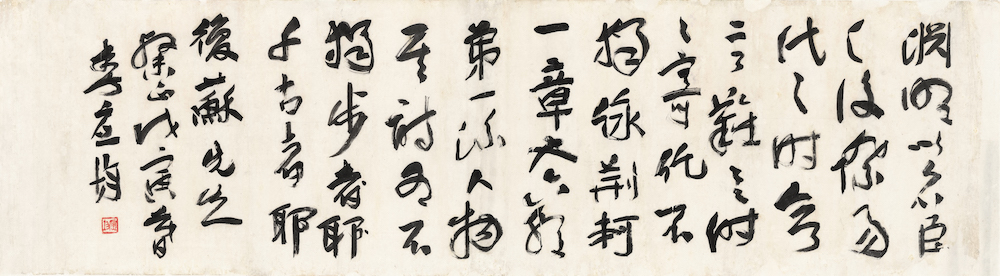 渊明以名臣
之後際易
代之時欲
言難言時
々寄託不
獨詠荊柯
一章六朝
第一流人物
其詩有不
獨步者耶
千古者耶
復蘇先生
察正戊寅春